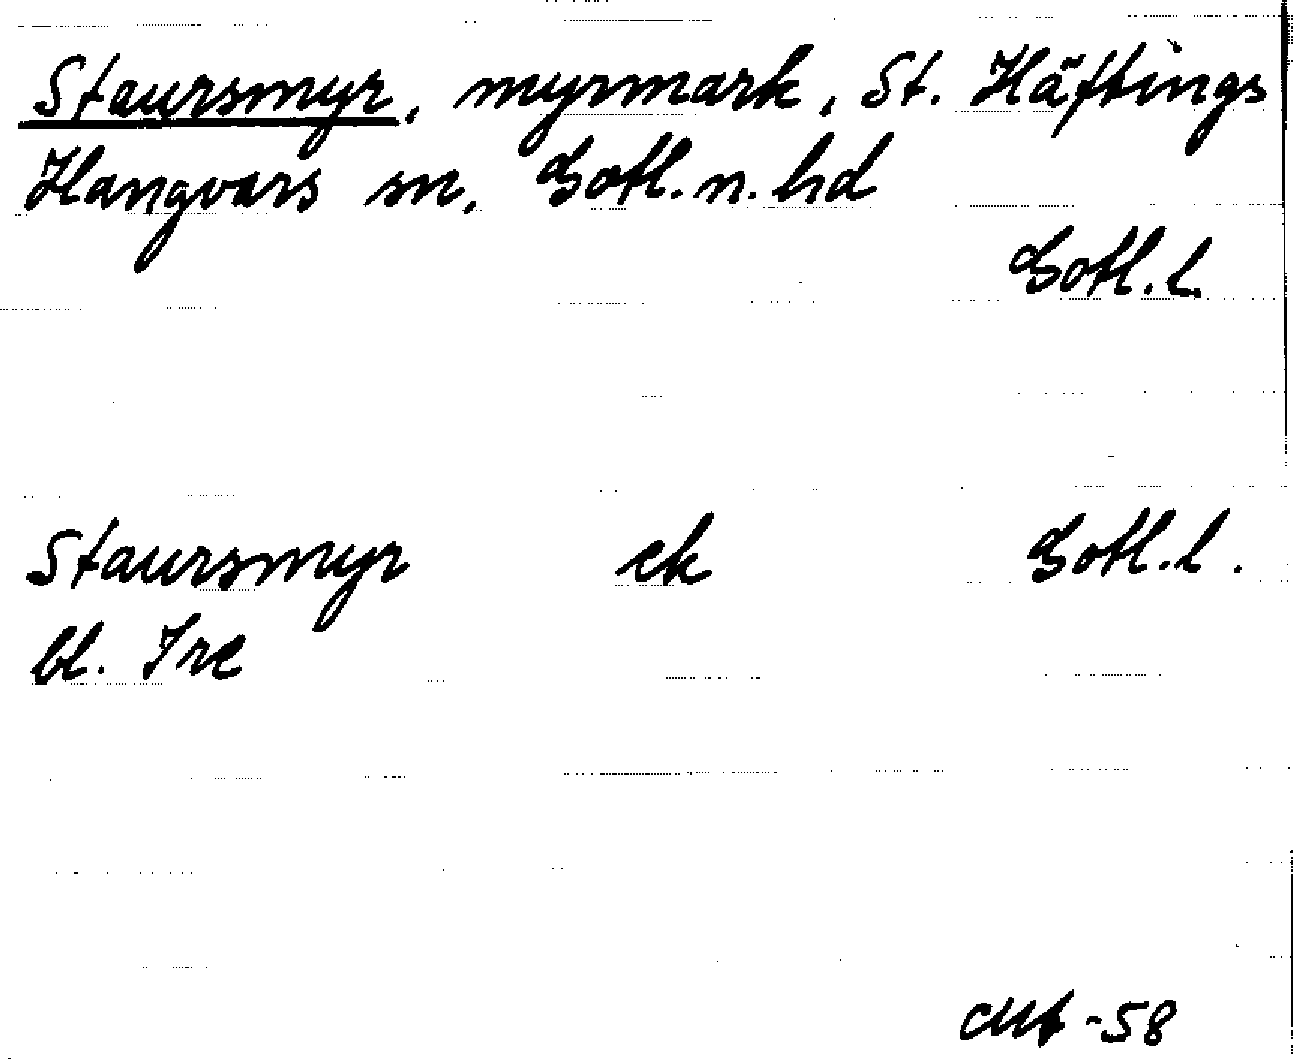 Staursmyr, myrmark, St. Häftings
Hangvars sn, Gotl. n. hd
Gotl. l.
Staursmyr ek Gotl. l.
bl. Ire
-58